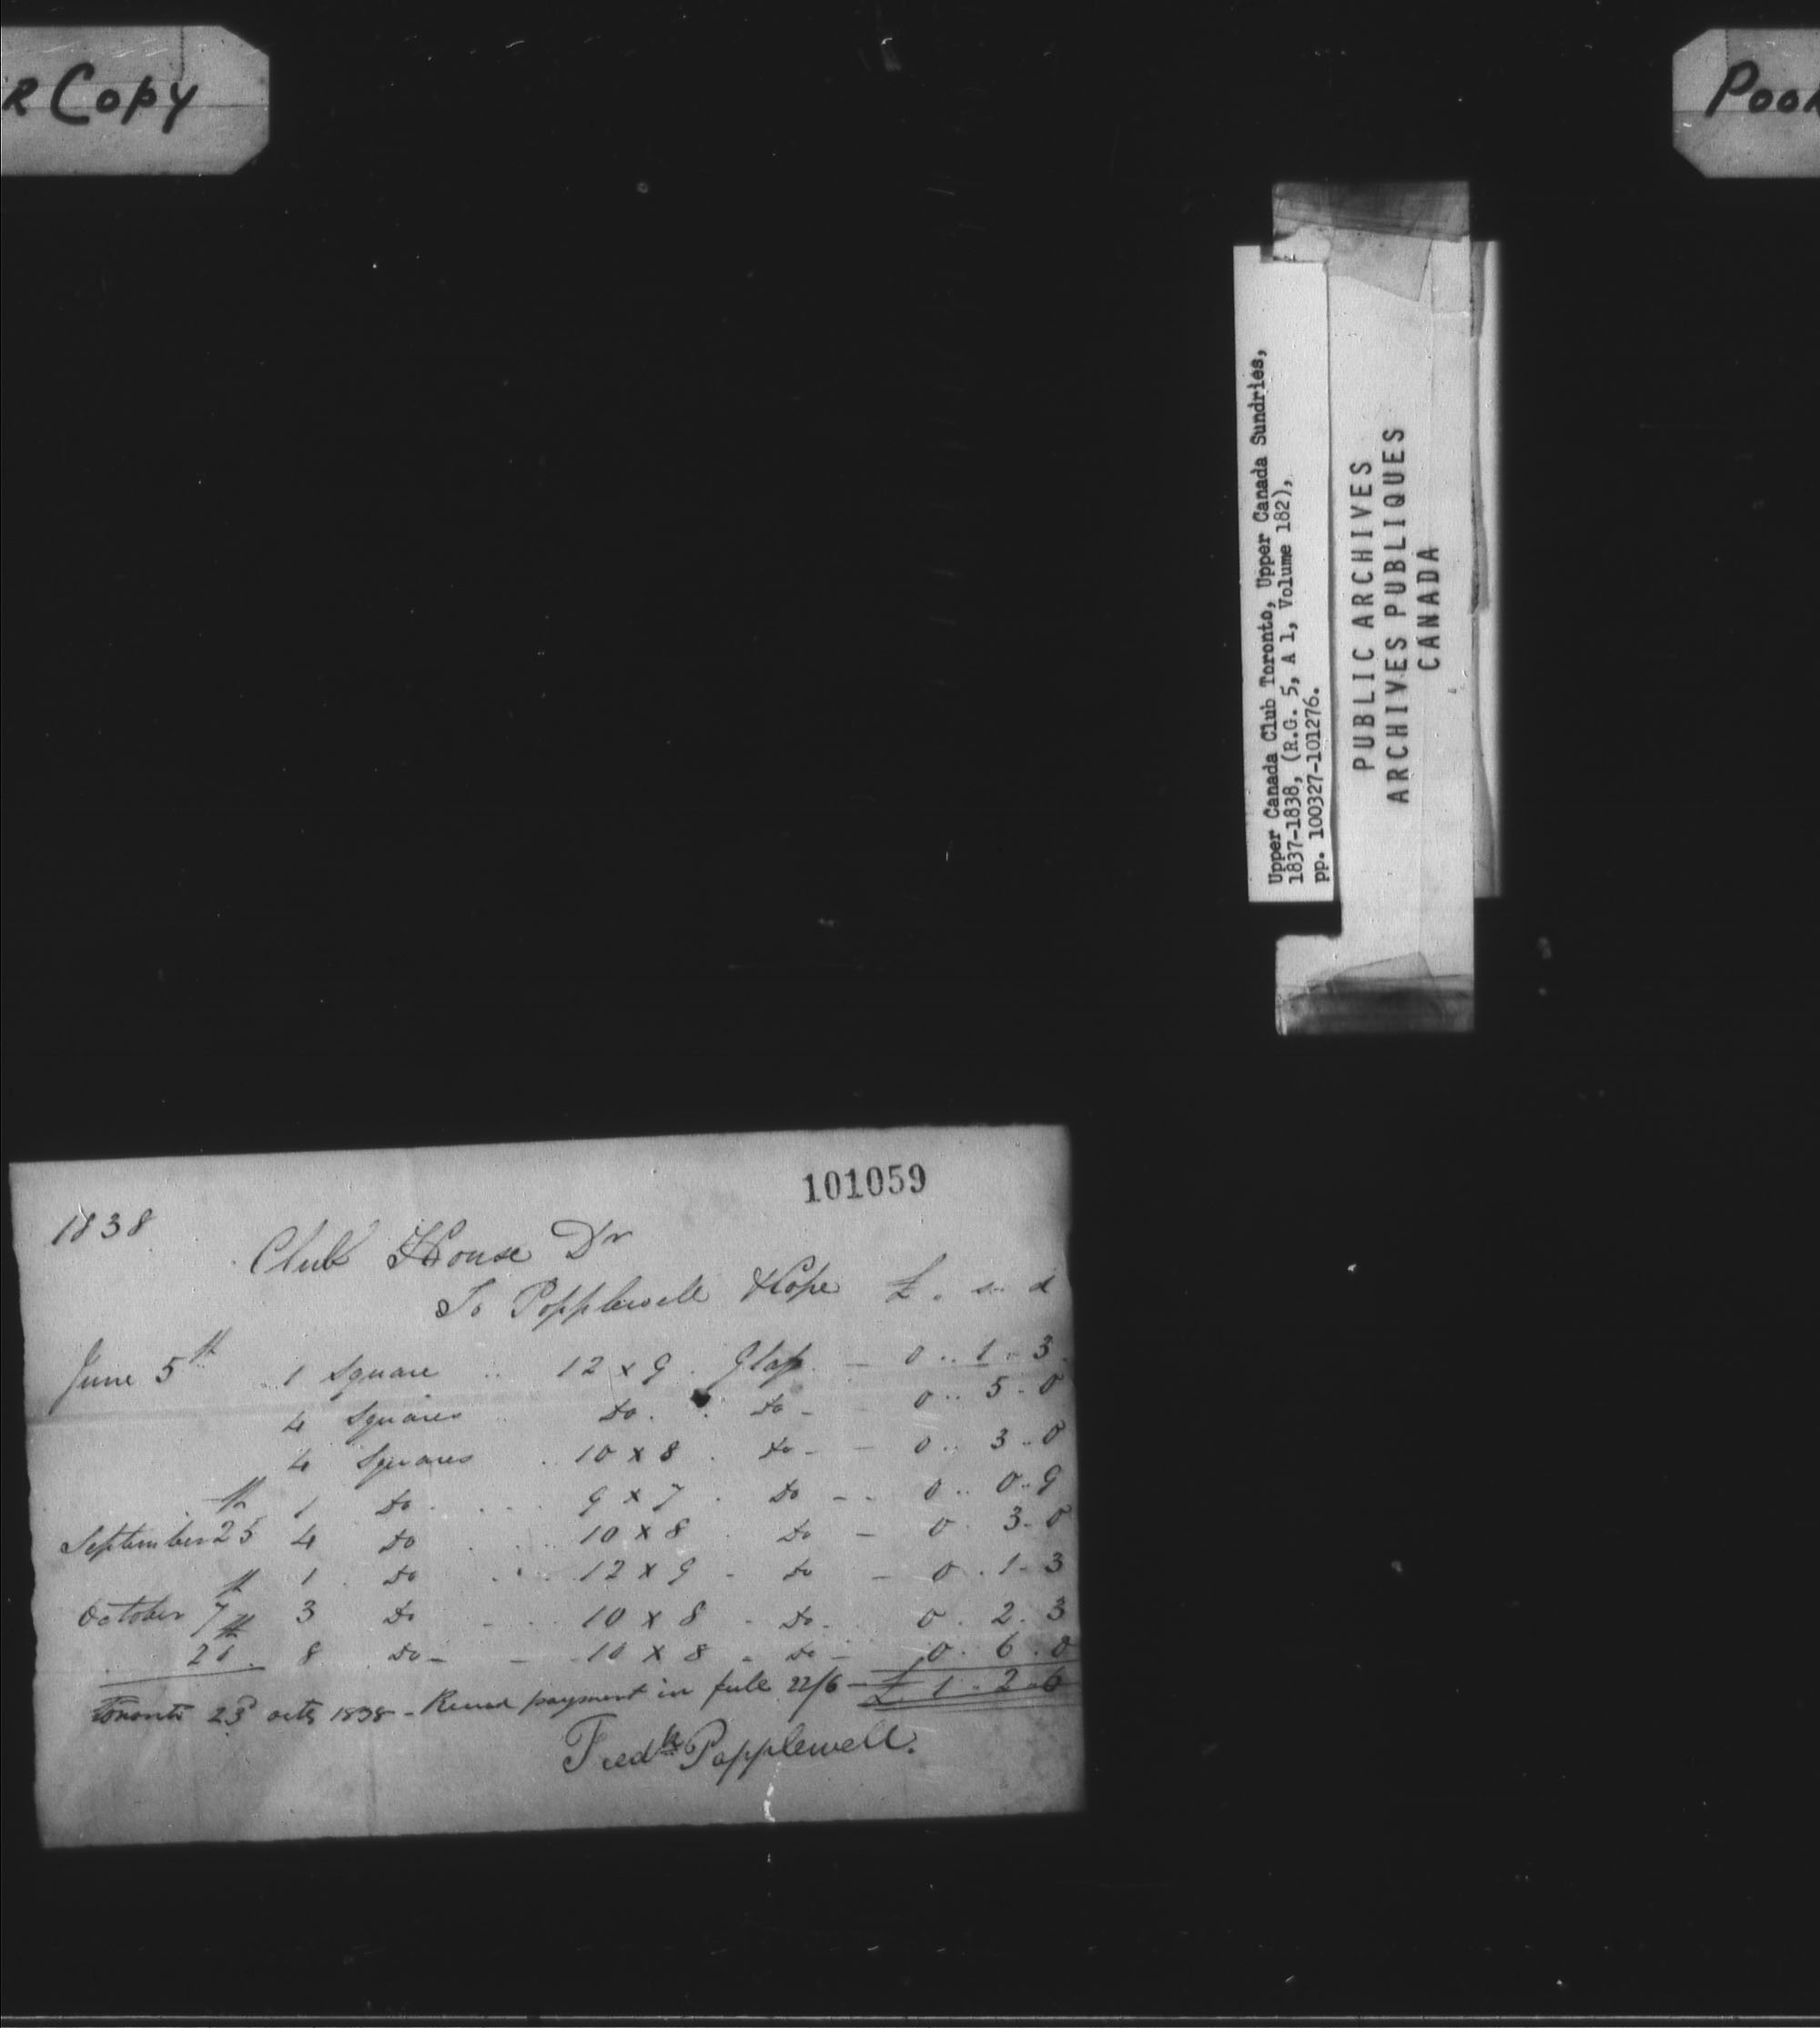 R Copy
Poor
Upper Canada Club Toronto, Upper Canada Sundries,
1837-1838, (R.G. 5, A 1, Volume 182),
pp. 100327-101276.
PUBLIC ARCHIVES
ARCHIVES PUBLIQUES
CANADA
101059
1838
Club House Dr
To Popplewell & Cope £ . s. d
June 5th 1 Square .. 12 x 9 . Glass — 0 .. 1 - 3
4 Squares Do . Do - 0 .. 5 - 0
4 Squares . 10 x 8 . Do - - 0 .. 3 .. 0
1 Do . . . . 9 x 7 . Do - - 0 .. 0 .. 9
September 25th 4 Do . . . 10 x 8 . Do - 0 . 3 - 0
1 . Do . . 12 x 9 - Do - 0 . 1 - 3
October 7th 3 Do - . . 10 x 8 - Do - 0 . 2 . 3
21th 8 Do - - 10 x 8 - Do - 0 . 6 . 0
Toronto 23d octr 1838 - Recved payment in full 22/6 — £ 1 - 2 - 6
Fredk Popplewell.